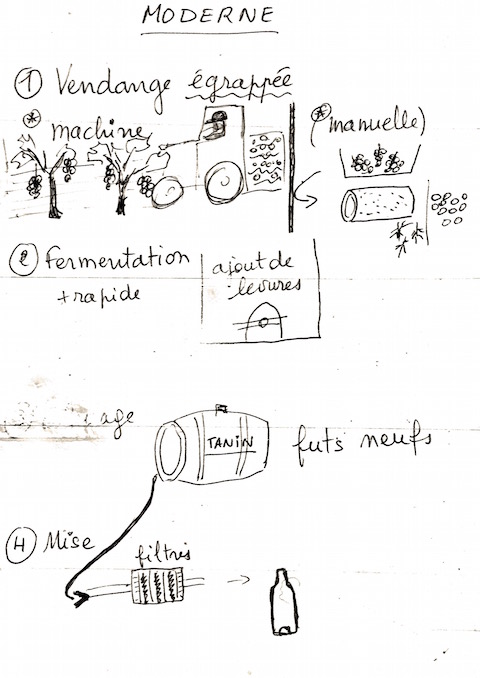 MODERNE
① Vendange égrappée
* machine
(* manuelle)
② fermentation
+ rapide
ajout de
levures
age
TANIN
futs neufs
④ Mise
filtres